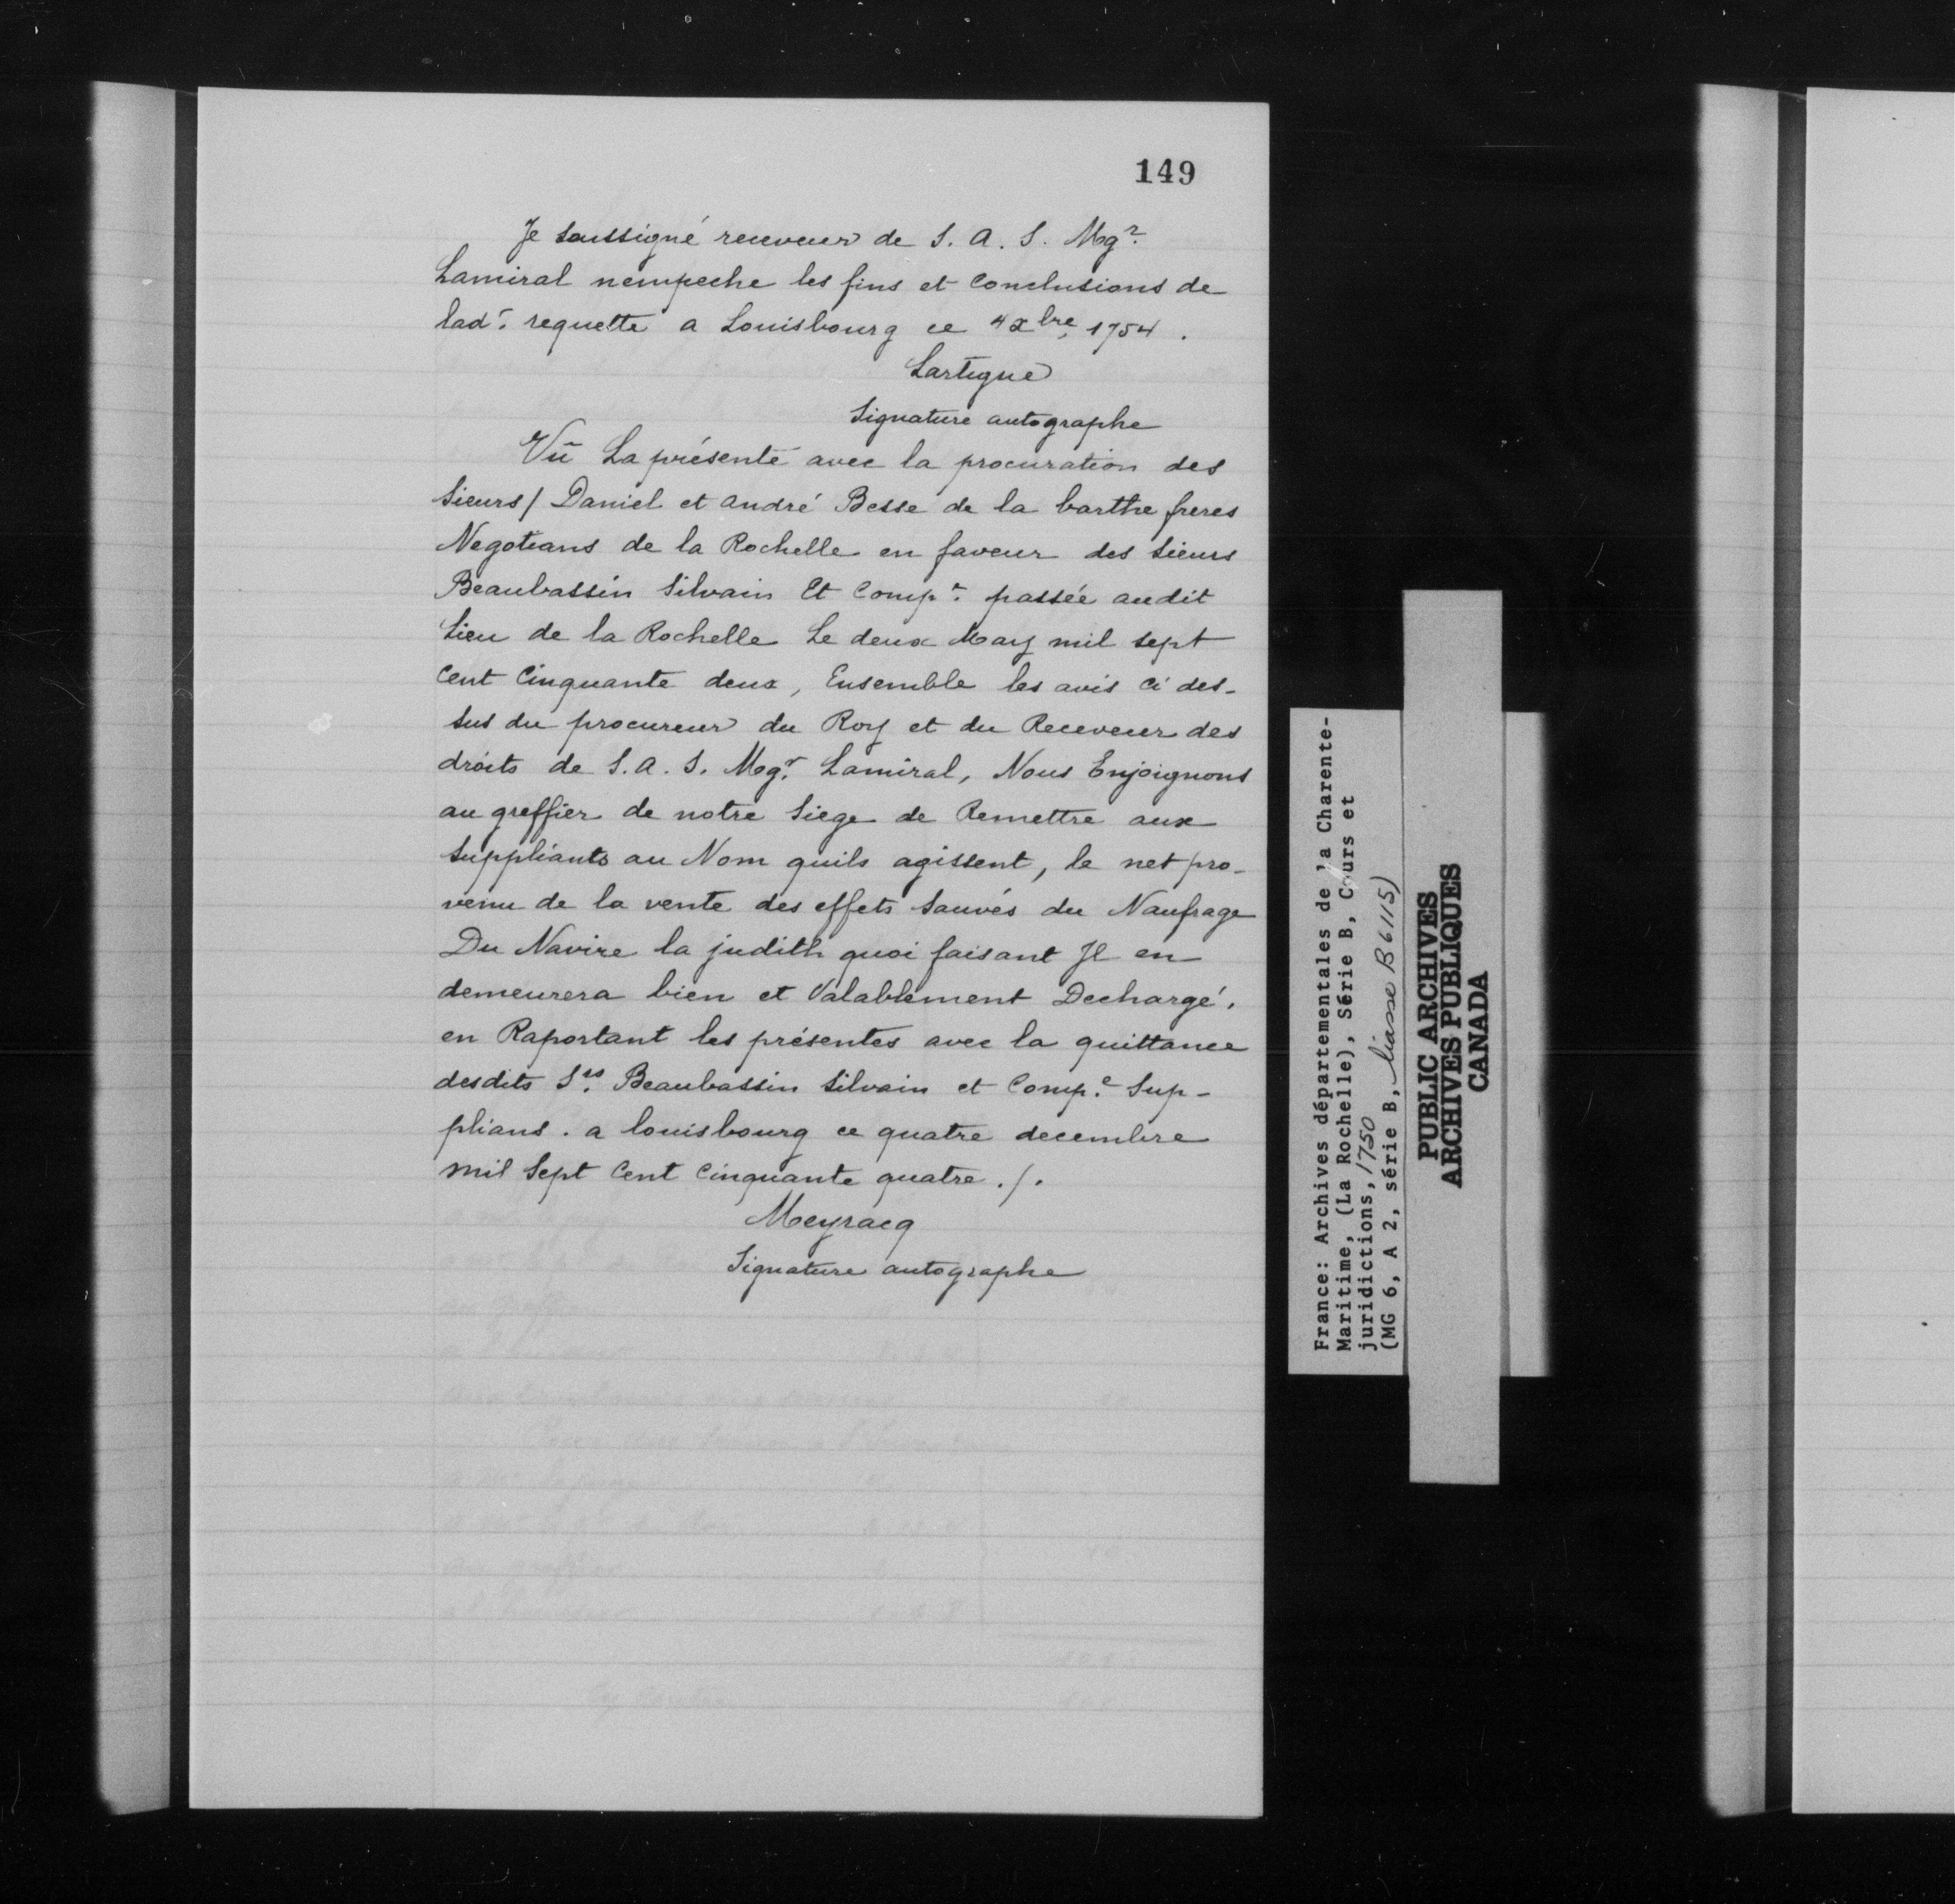 149
Je soussigné receveur de S. A. S. Mgr.
Lamiral nempeche les fins et conclusions de
lade. requette a Louisbourg ce 4 xbre, 1754.
Lartigue
Signature autographe
Vû La présente avec la procuration des
Sieurs/ Daniel et andré Besse de la barthe freres
Negotians de la Rochelle en faveur des Sieurs
Beaubassin Silvain Et Compe. passée audit
Lieu de la Rochelle Le deux May mil sept
Cent Cinquante deux, Ensemble les avis ci des-
sus du procureur du Roy et du Receveur des
droits de S. A. S. Mgr. Lamiral, Nous Enjoignons
au greffier de notre Siege de Remettre aux
Suppliants au Nom quils agissent, le net pro-
venu de la vente des effets Sauvés du Naufrage
Du Navire la judith quoi faisant Jl en
demeurera bien et Valablement Dechargé,
en Raportant les présentes avec la quittance
desdits Srs. Beaubassin Silvain et Compe. Sup-
plians. a louisbourg ce quatre decembre
mil Sept Cent Cinquante quatre ./.
Meyracq
Signature autographe
France: Archives départementales de la Charente-
Maritime, (La Rochelle), Série B, Cours et
juridictions, 1750
(MG 6, A 2, série B, liasse B 6115)
PUBLIC ARCHIVES
ARCHIVES PUBLIQUES
CANADA